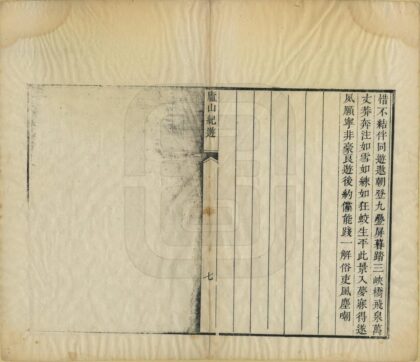 惜不結伴同遊遨朝登九疊屏暮踏三峽橋飛泉萬
丈莽奔注如雪如練如狂蛟生平此景入夢寐得遂
夙願寧非豪良遊後約儻能踐一解俗吏風塵嘲
廬山紀遊
七